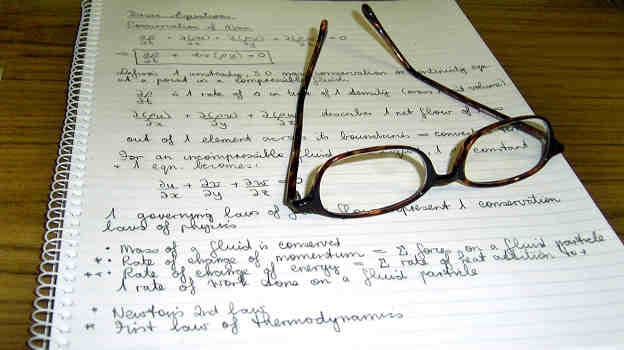 Conservation of Mass
∂ρ/∂t + ∂(ρu)/∂x + ∂(ρv)/∂y + = 0
⇒ ∂ρ/∂t + div(ρu) = 0
Defines 1 unsteady, 3D mass conservation continuity eqn
at a point in a compressible fluid.
∂ρ/∂t is 1 rate of Δ in time of 1 density (mass volume)
∂(ρu)/∂x + ∂(ρv)/∂y + ∂(ρw)/∂z describes 1 net flow of
out of 1 element across its boundaries =
For an incompressible fluid 1 constant
+ 1 eqn. becomes:
∂u/∂x + ∂v/∂y + ∂w/∂z
1 governing laws of represent 1 conservation
laws of physics
• Mass of a fluid is conserved
* • Rate of change of momentum = Σ forces on a fluid particle
** • Rate of change of energy = Σ rate of heat addition to +
1 rate of work done on a fluid particle
* Newton's 2nd law
** First law of thermodynamics